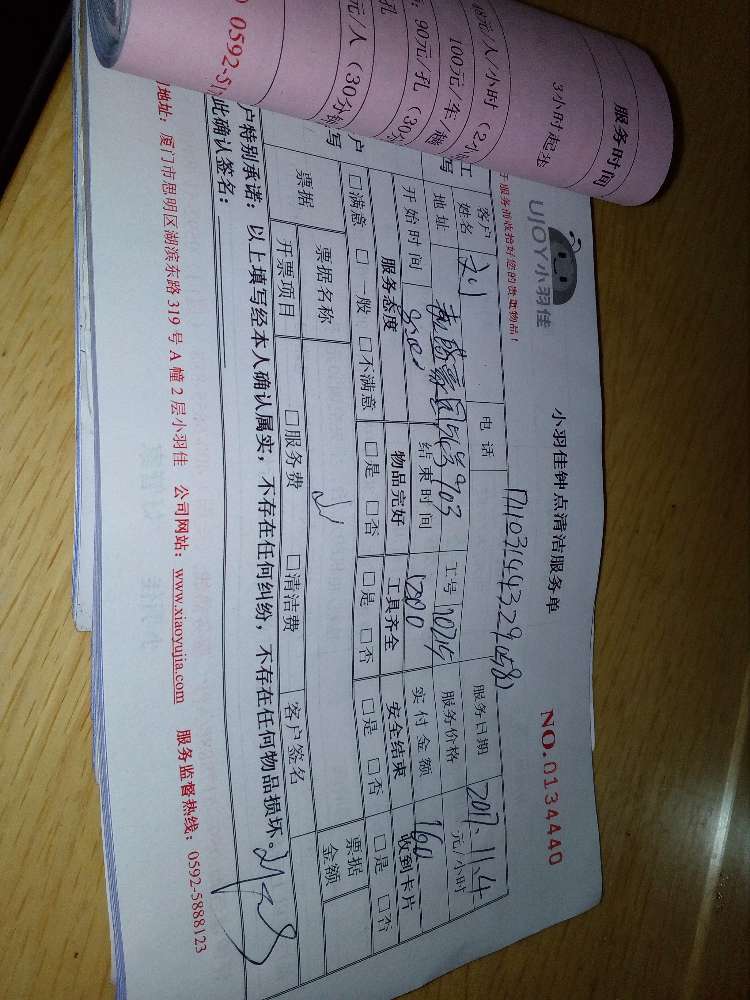 服务时间
3小时起步
100元/车/
90元/孔
元/人（30分
孔
0592-5
UJOY小羽佳
小羽佳钟点清洁服务单
NO.0134440
服务而收拾好您的贵重物品！
客户姓名 刘 电话 服务日期 2017.11.4
地址 903 工号 服务价格 元/小时
开始时间 结束时间 1200 实付金额 160
服务态度 物品完好 工具齐全 安全结束 收到卡片
□满意 □一般 □不满意 □是 □否 □是 □否 □是 □否 □是 □否
票据 票据名称 票据金额
开票项目 □服务费 □清洁费 客户签名
户特别承诺：以上填写经本人确认属实，不存在任何纠纷，不存在任何物品损坏。
此确认签名：
地址：厦门市思明区湖滨东路 319 号 A 幢 2 层小羽佳 公司网站：www.xiaoyujia.com 服务监督热线：0592-5888123